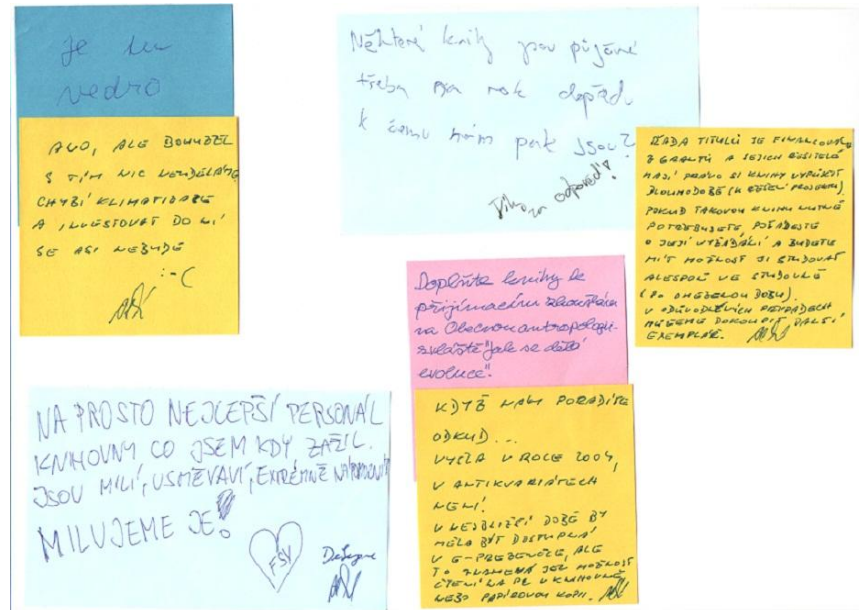 Je tu
vedro
ANO, ALE BOHUŽEL
S TÍM NIC NEUDĚLÁME
CHYBÍ KLIMATIZACE
A INVESTOVAT DO NÍ
SE ASI NEBUDE
:-(
Některé knihy jsou půjčené
třeba na rok dopředu
k čemu nám pak jsou?
Díky za odpověď!
ŘADA TITULŮ JE FINANCOVÁNA
Z GRANTŮ A JEJICH ŘEŠITELÉ
MAJÍ PRÁVO SI KNIHY VYPŮJČIT
DLOUHODOBĚ (K ŘEŠENÍ PROJEKTU).
POKUD TAKOVOU KNIHU NUTNĚ
POTŘEBUJETE, POŽÁDEJTE
O JEJÍ VYŽÁDÁNÍ A BUDETE
MÍT MOŽNOST JI STUDOVAT
ALESPOŇ VE STUDOVNĚ
(PO OMEZENOU DOBU).
V ODŮVODNĚNÝCH PŘÍPADECH
MŮŽEME DOKOUPIT DALŠÍ
EXEMPLÁŘ.
Doplňte knihy k
přijímacím zkouškám
na Obecnou antropologii -
zvláště "Jak se dělá
evoluce".
KDYŽ NÁM PORADÍTE
ODKUD...
VYŠLA V ROCE 2004,
V ANTIKVARIÁTECH
NENÍ.
V NEJBLIŽŠÍ DOBĚ BY
MĚLA BÝT DOSTUPNÁ
V E-PREZENČCE, ALE
TO ZNAMENÁ JEN MOŽNOST
ČTENÍ NA PC V KNIHOVNĚ
NEBO PAPÍROVOU KOPII.
NA PROSTO NEJLEPŠÍ PERSONÁL
KNIHOVNY CO JSEM KDY ZAŽIL.
JSOU MILÍ, USMĚVAVÍ, EXTRÉMNĚ NÁPOMOCNÍ
MILUJEME JE!
FSV
Děkujeme